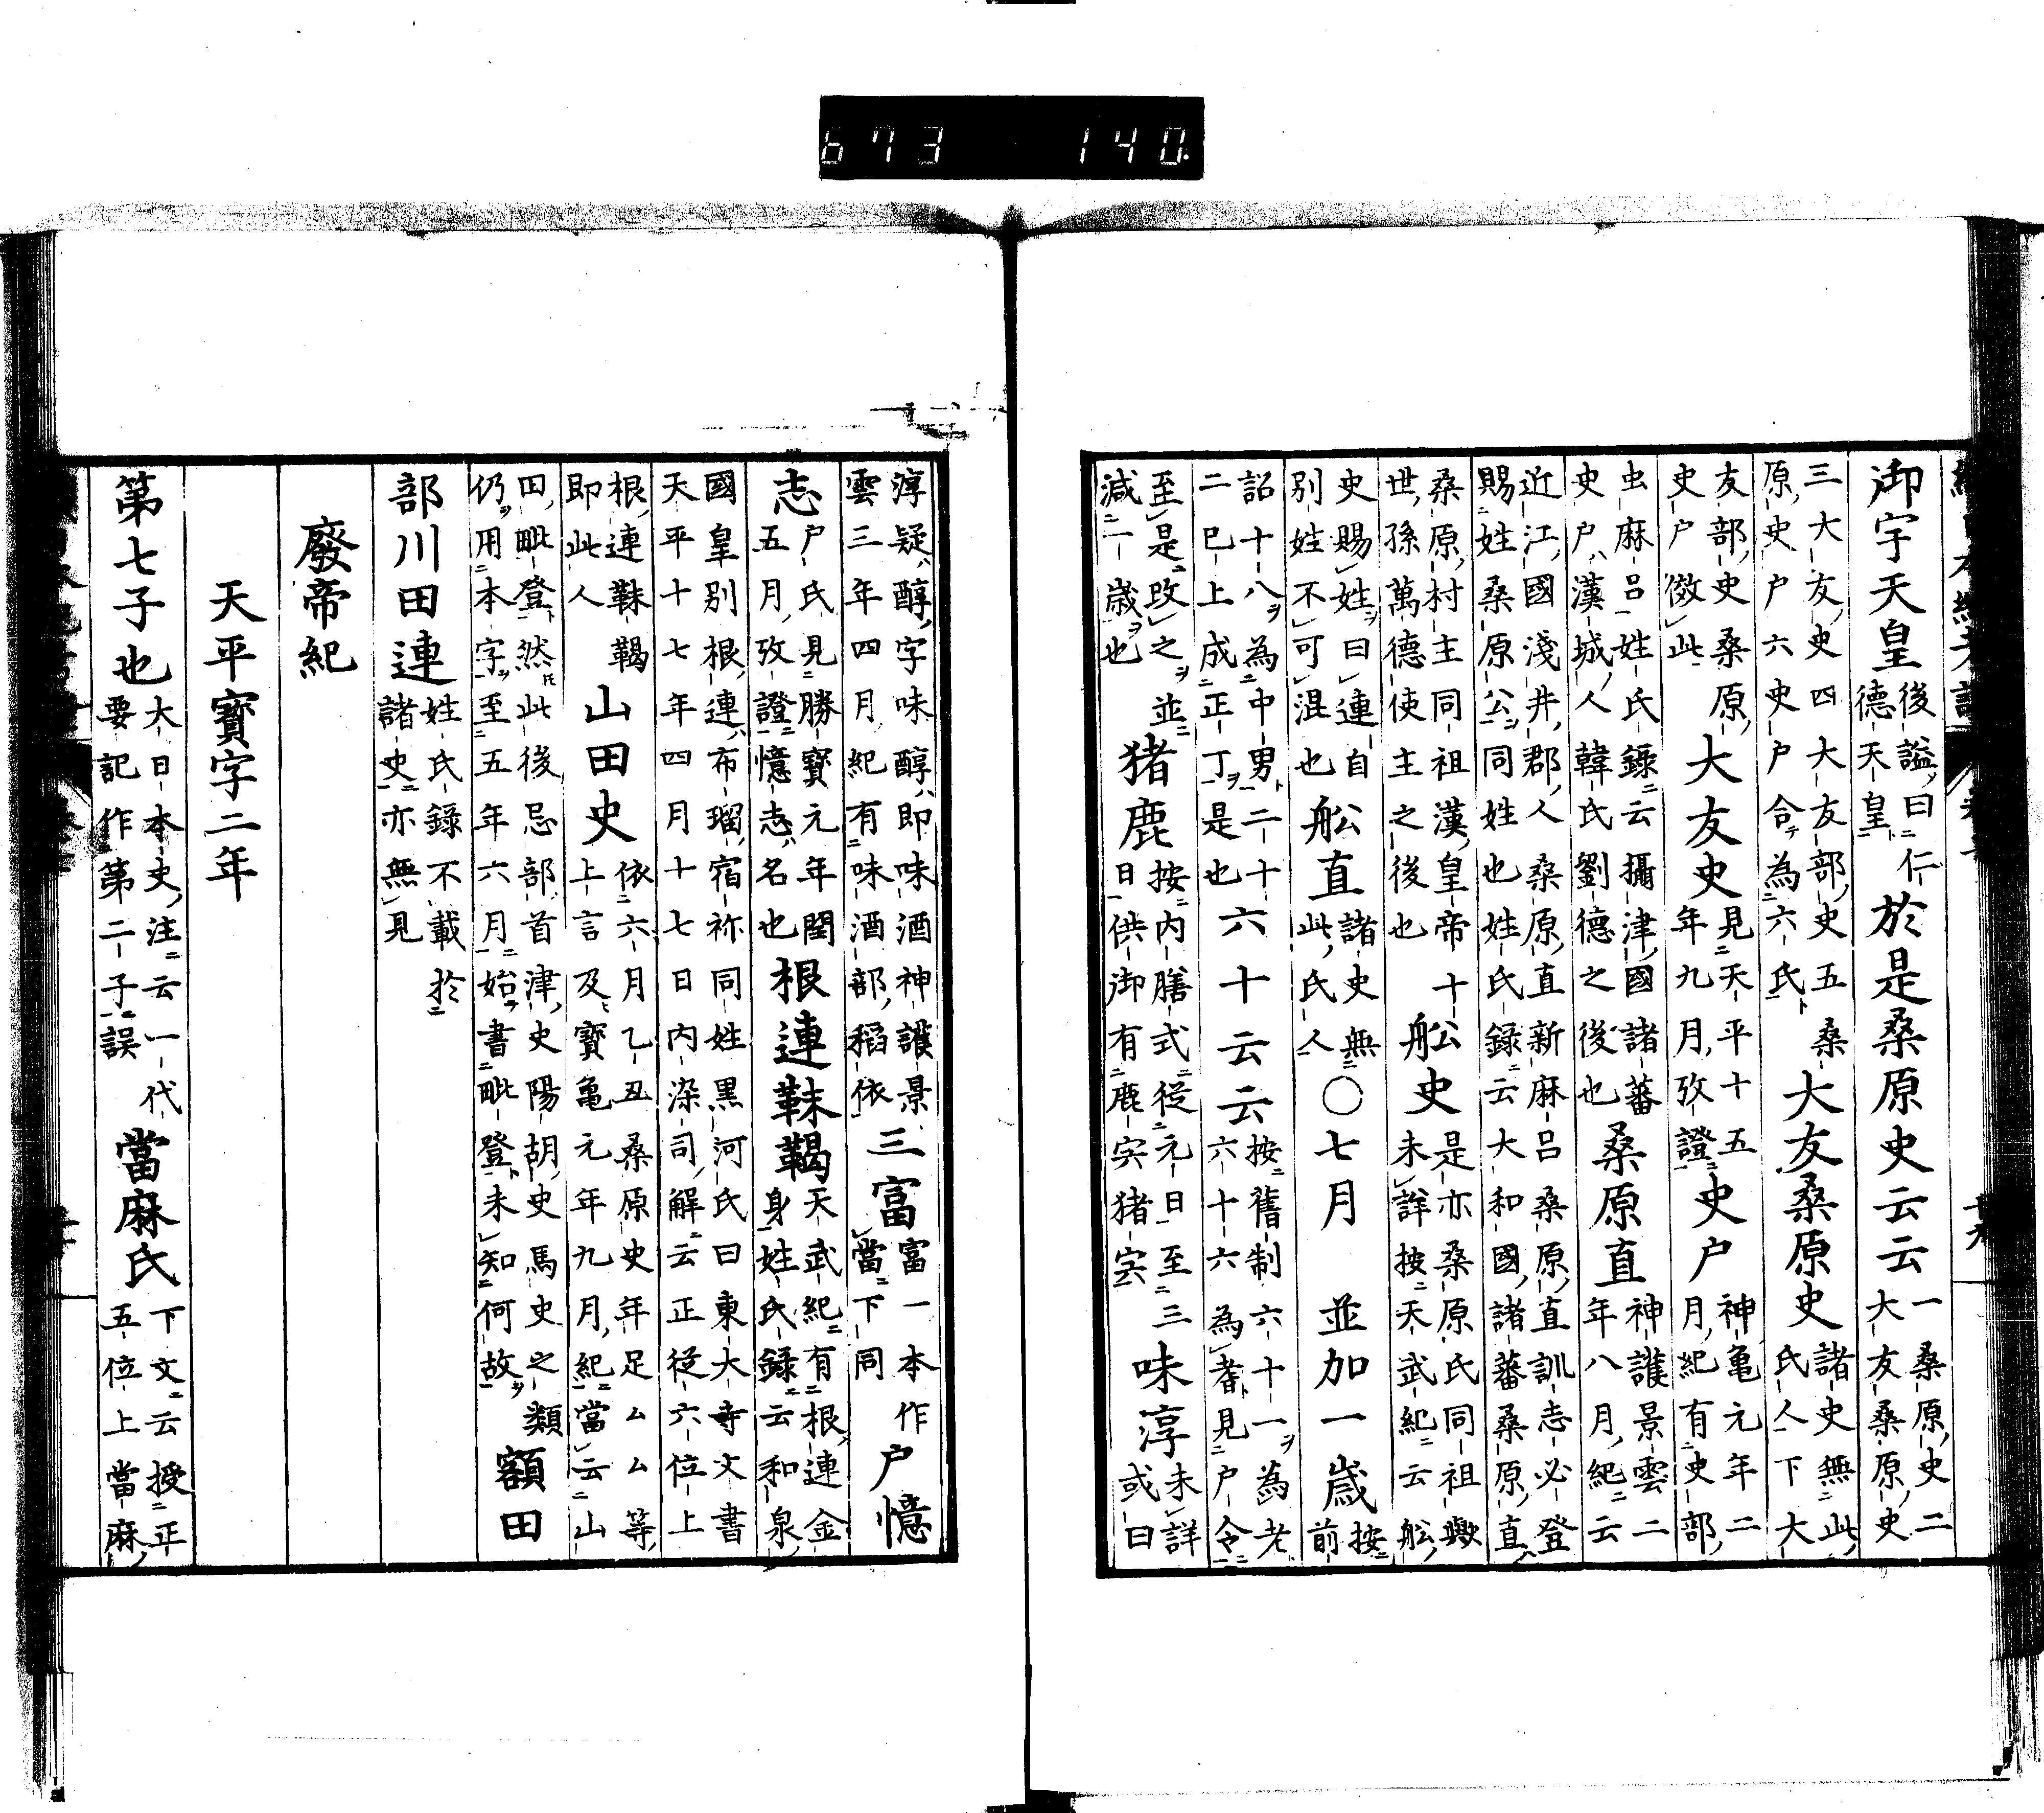 御宇天皇後謚曰仁德天皇於是桑原史云云一桑原史二大友桑原史
三大友史四大友部史五桑原史戶六史戶合為六氏大友桑原史諸史無此氏人下大
友部史桑原史戶傚此大友史見天平十五年九月攷證史戶神亀元年二月紀有史部
虫麻呂姓氏錄云攝津國諸蕃史戶漢城人韓氏劉德之後也桑原直神護景雲二年八月紀云
近江國淺井郡人桑原直新麻呂桑原直訓志必登賜姓桑原公同姓姓也姓氏錄云大和國諸蕃桑原直
桑原村主同祖漢皇帝十世孫萬德使主之後也船史是亦桑原氏同祖歟未詳按天武紀云船
史賜姓曰連自別姓不可混也船直諸史無此氏人〇七月 並加一歲按前
詔十八為中男二十二已上成正丁是也六十云云按舊制六十一為老六十六為耆見戶令
至是改之並減一歲也猪鹿按內膳式從元日至三日供御有鹿宍猪宍味淳未詳或曰
淳疑醇字味醇即味酒神護景雲三年四月紀有味酒部稻依三富富一本作當下同戶憶
志戶氏見勝寶元年閏五月攷證憶志名也根連靺鞨天武紀有根連金身姓氏錄云和泉
國皇別根連布瑠宿祢同姓黑河氏曰東大寺文書天平十七年四月十七日內染司解云正從六位上
根連靺鞨即此人山田史依六月乙丑桑原史年足ムム等上言及寶亀元年九月紀當云山
田毗登然此後忌部首津史陽胡史馬史之類仍用本字至五年六月始書毗登未知何故額田
部川田連姓氏錄不載於諸史亦無見
廢帝紀
天平寶字二年
第七子也大日本史注云一代要記作第二子誤當麻氏下文云授正五位上當麻
673 140